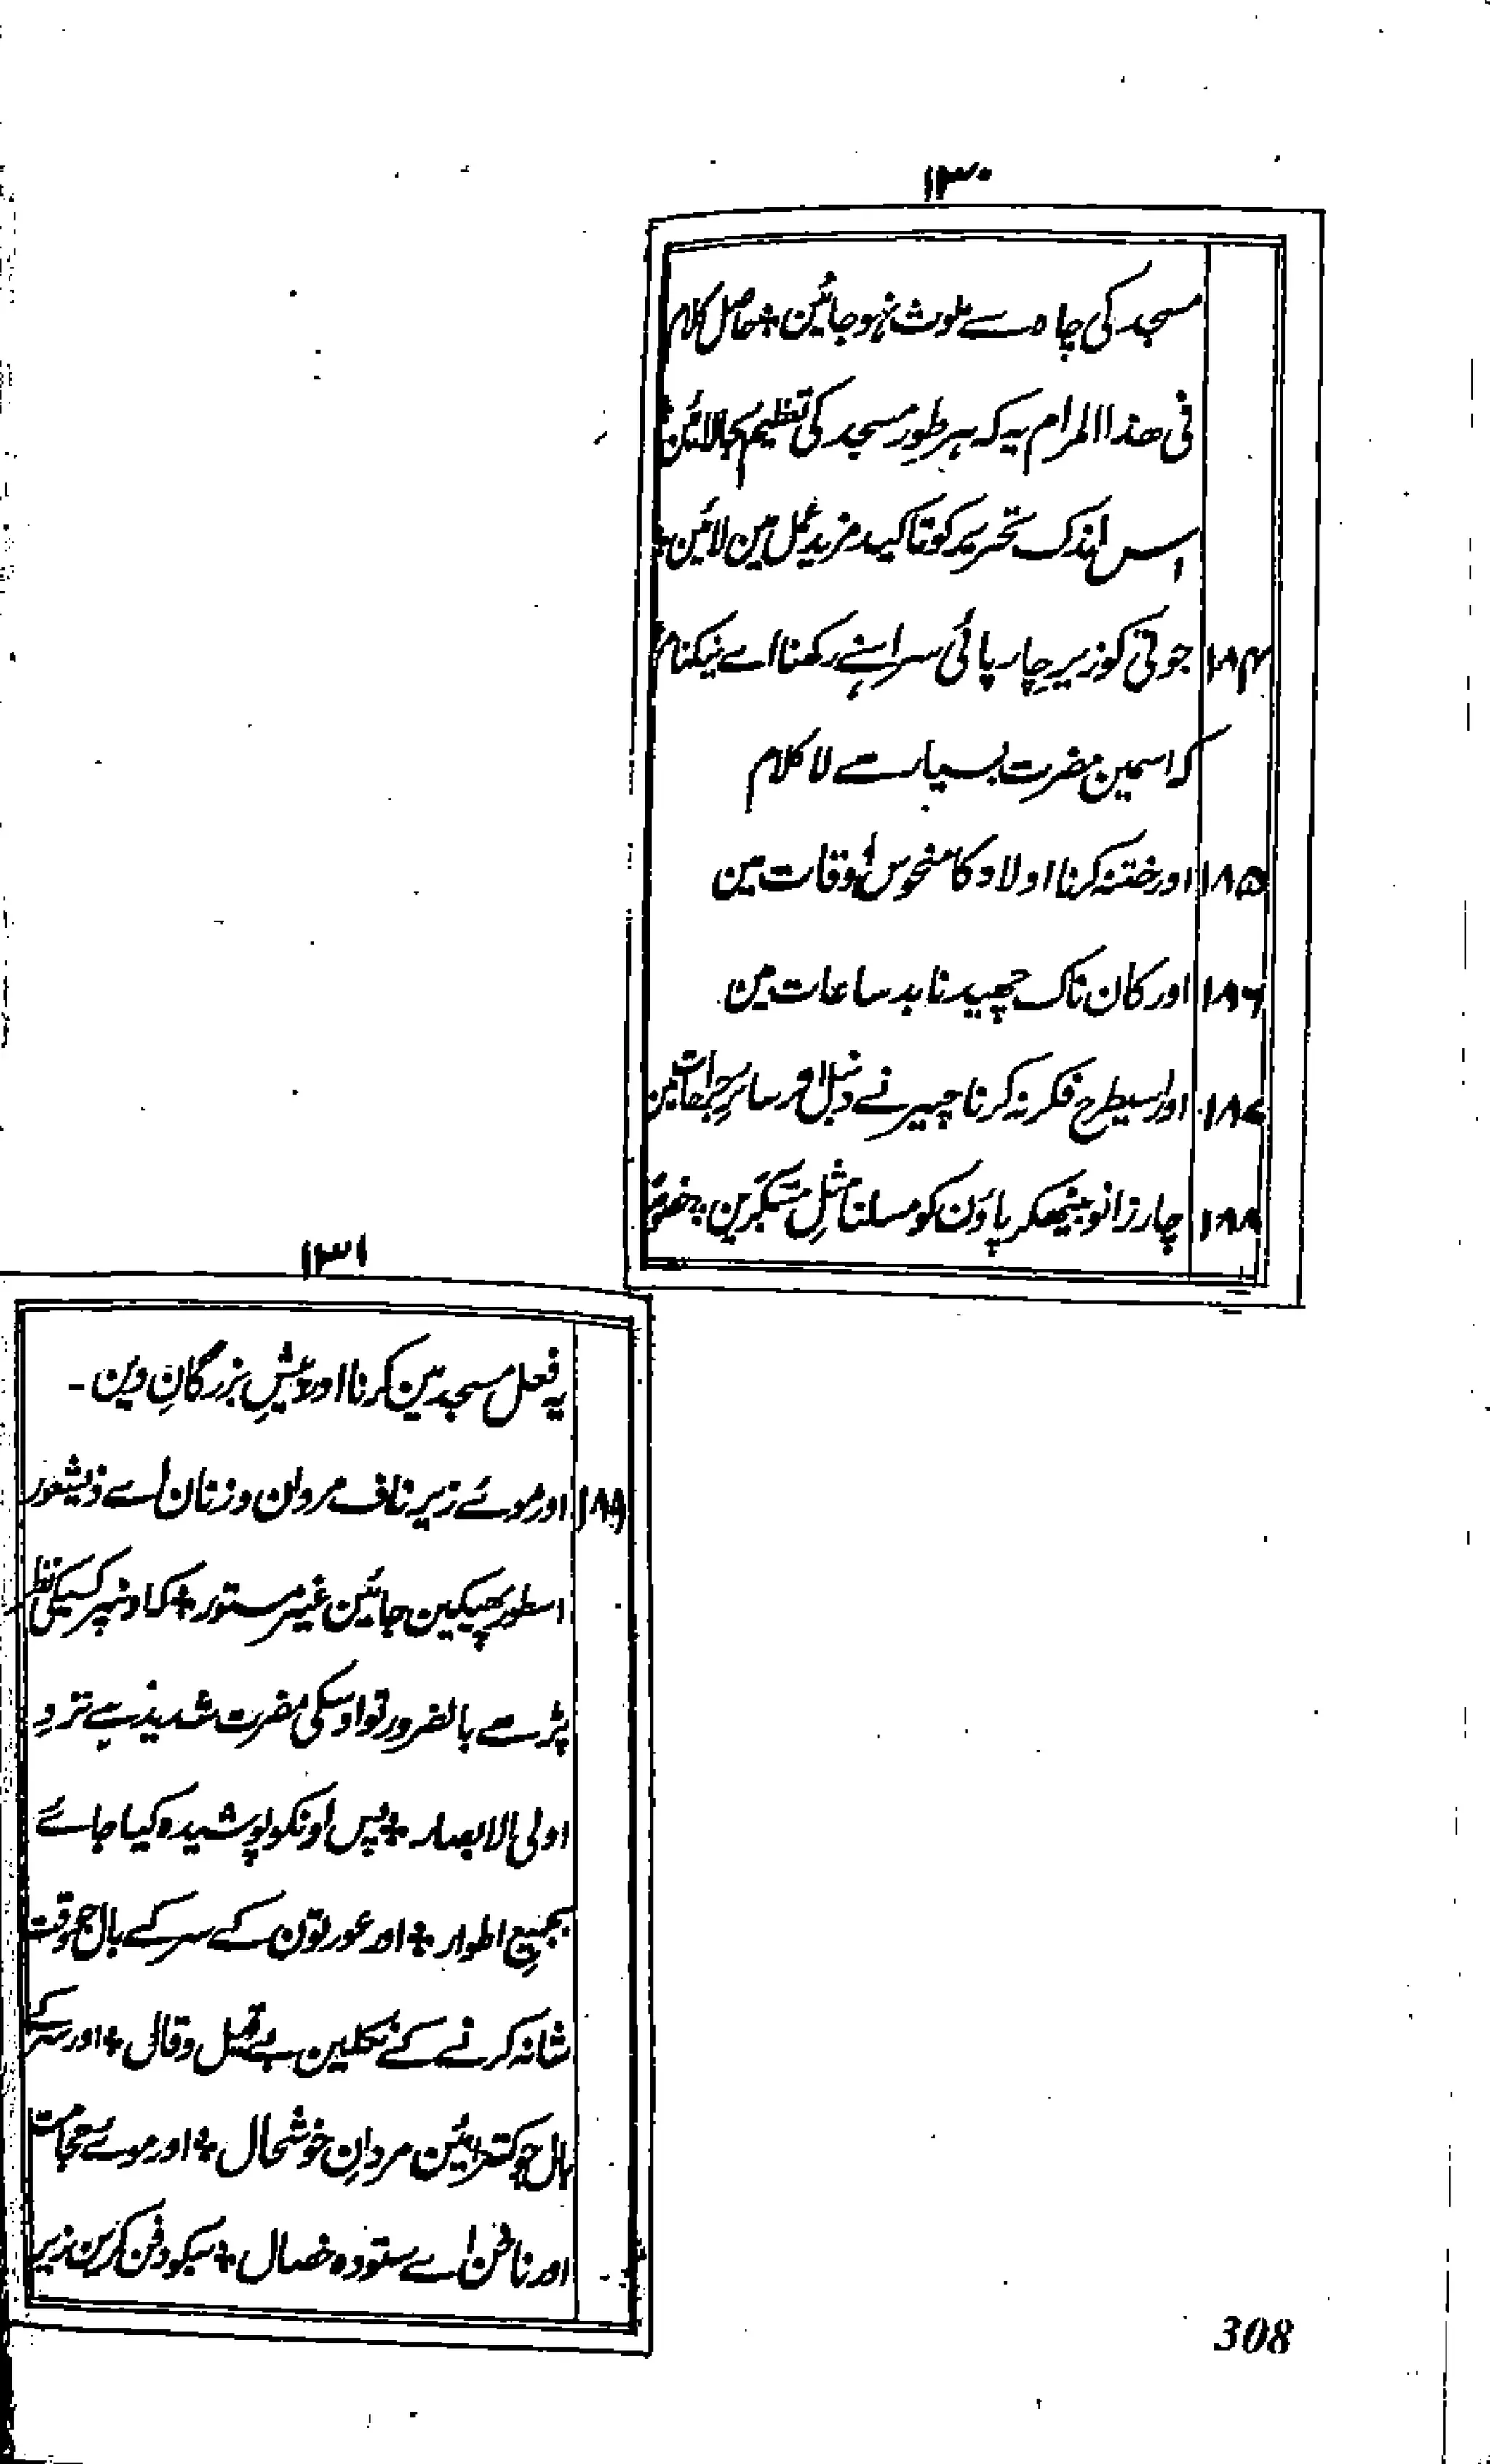 ۱۳۰
مسجد کی چاہ سے ملوث نہوجائین * حاصل کلام
فی ھذا المرام یہ کہ ہر طور مسجد کی تعظیم بجالائین *
اس اندک تحریر کو تاکید مزید عمل مین لائین *
۱۸۴ جوتی کو زیرِ چارپائی سراہنے رکھنا اے نیکنام
کہ اسمین مضرت بسیار ہے لا کلام
۱۸۵ اور ختنہ کرنا اولاد کا منحوس اوقات مین
۱۸۶ اور کان ناک چھیدنا بد ساعات مین
۱۸۷ اور اسیطرح فکر نہ کرنا چیرنے دنبل اور سائر جراحات مین
۱۸۸ چار زانو بیٹھکر پاؤن کو مسلنا مثلِ متکبرین *
۱۳۱
یہ فعل مسجد مین کرنا اور پیشِ بزرگانِ دین -
۱۸۹ اور موئے زیر ناف مردان و زنان اے ذیشعور
اسطور پھیکین جائین غیر مستور * کہ اونپر کسیکی نظر
پڑے بالضرور تو اوسکی مضرت شدید ہے نزدِ
اولی الابصار * پس اونکو پوشیدہ کیا جائے
بجمیع اطوار * اور عورتون کے سر کے بال جو وقت
شانہ کرنے کے نکلین بے قیل و قال * اور سر کے
بال جو کترائین مردانِ خوشحال * اور موے حجامت
اور ناخن اے ستودہ خصال * سبکو دفن کرین زیر
308